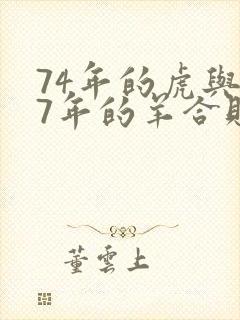 74年的虎與
7年的羊合
董雲上